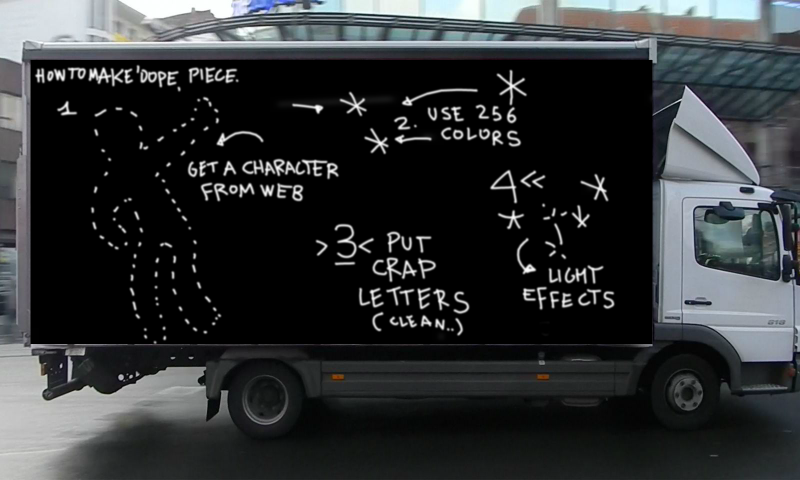 HOW TO MAKE 'DOPE, PIECE.
1
GET A CHARACTER
FROM WEB
2. USE 256
COLORS
>3< PUT
CRAP
LETTERS
(CLEAN..)
4<<
LIGHT
EFFECTS